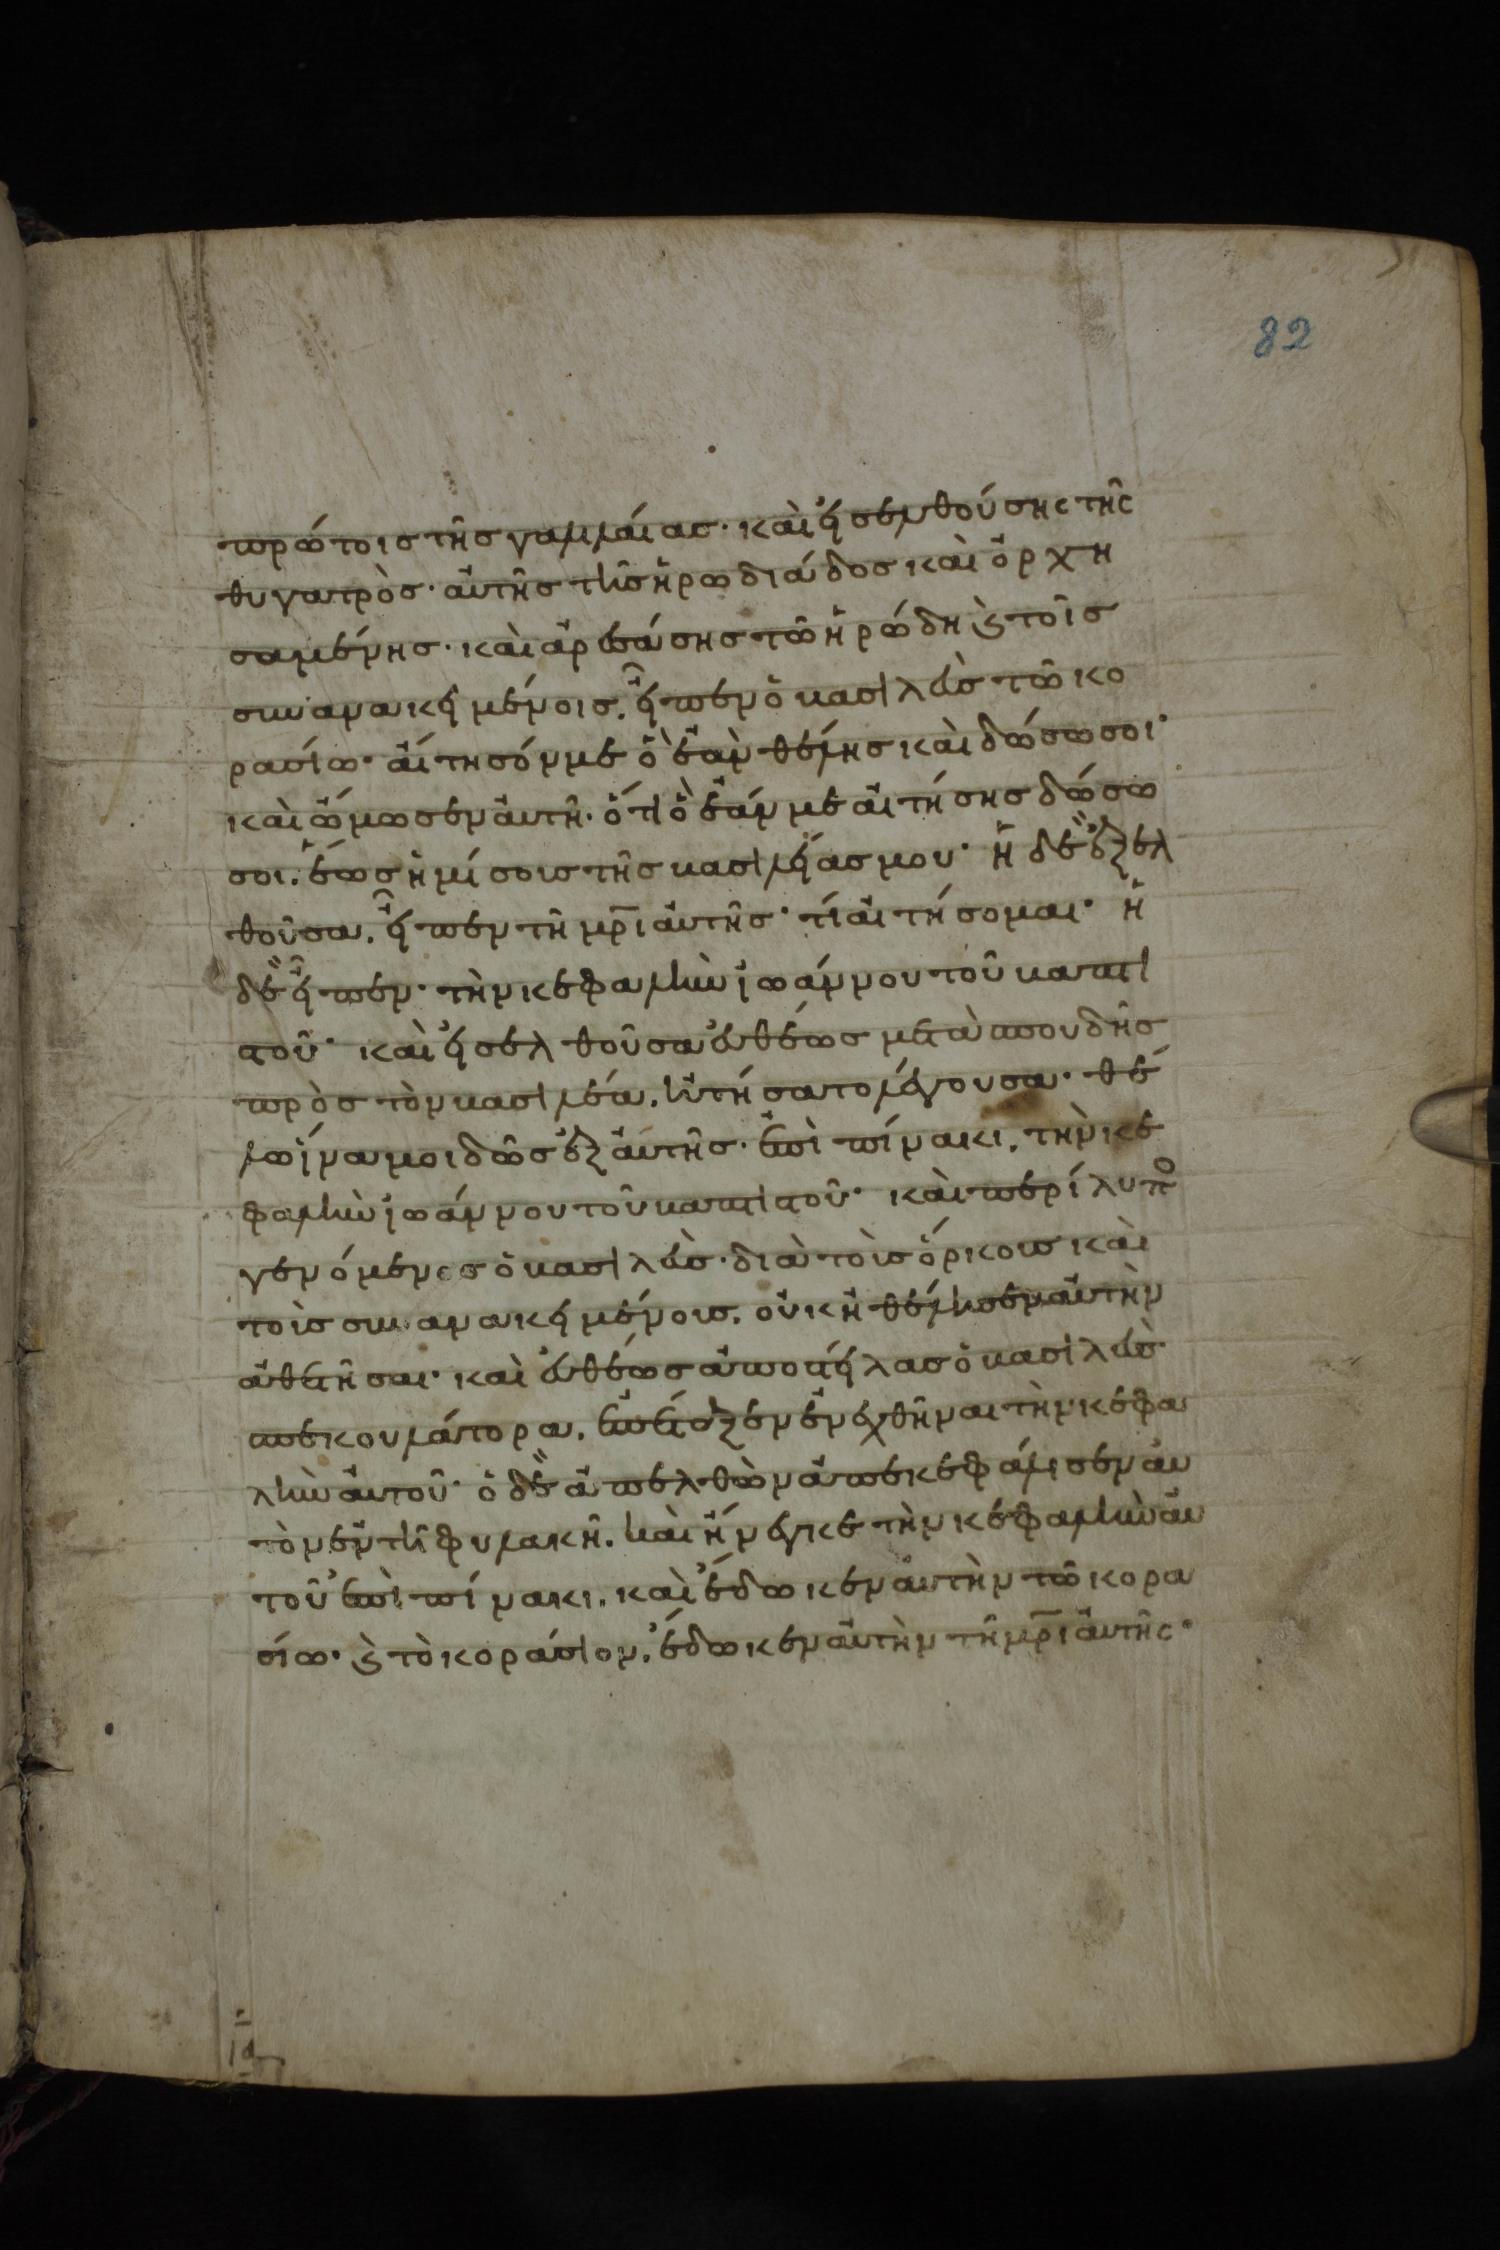 82
πρώτοις τῆς γαλιλαίας· καὶ εἰσελθούσης τῆς
θυγατρὸς· αὐτῆς τῆς ἡρωδιάδος καὶ ὀρχη
σαμένης· καὶ ἀρεσάσης τῶ ἡρώδη ϗ τοῖς
συνανακειμένοις. εἶπεν ὁ βασιλεὺς τῶ κο
ρασίω· αἴτησόν με ὃ ἐὰν θέλης καὶ δώσω σοι·
καὶ ὤμοσεν αὐτῆ· ὅτι ὃ ἐάν με αἰτήσης δώσω
σοι. ἕως ἡμίσους τῆς βασιλείας μου· ἡ δὲ ἐξελ
θοῦσα. εἶπεν τῆ μρ̅ι αὐτῆς· τί αἰτήσομαι· ἡ
δὲ εἶπεν· τὴν κεφαλὴν ἰωάννου τοῦ βαπτι
στοῦ· καὶ εἰσελθοῦσα εὐθέως μετὰ σπουδῆς
πρὸς τὸν βασιλέα. ἠτήσατο λέγουσα· θέ
λω ἵνα μοι δῶς ἐξ αὐτῆς· ἐπὶ πίνακι. τὴν κε
φαλὴν ἰωάννου τοῦ βαπτιστοῦ· καὶ περίλυπο
γενόμενος ὁ βασιλεὺς· διὰ τοὺς ὅρκους καὶ
τοὺς συνανακειμένους. οὐκ ἠθέλησεν αὐτὴν
ἀθετῆσαι· καὶ εὐθέως ἀποστείλας ὁ βασιλεὺς
σπεκουλάτορα. ἐπέταξεν ἐνεχθῆναι τὴν κεφα
λὴν αὐτοῦ· ὁ δὲ ἀπελθὼν ἀπεκεφάλισεν αὐ
τὸν ἐν τῆ φυλακῆ. καὶ ἤνεγκε τὴν κεφαλὴν αὐ
τοῦ ἐπὶ πίνακι. καὶ ἔδωκεν αὐτὴν τῶ κορα
σίω· ϗ τὸ κοράσιον. ἔδωκεν αὐτὴν τῆ μρ̅ι αὐτῆς·